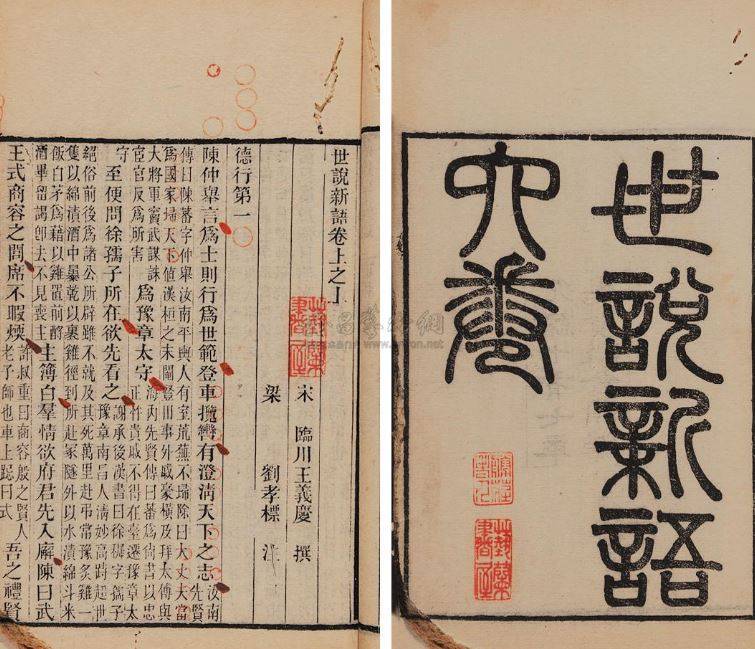 世說新語
六卷
世說新語卷上之上
宋 臨川王義慶 撰
梁 劉孝標 注
德行第一
陳仲舉言爲士則行爲世範登車攬轡有澄清天下之志汝南先賢
傳曰陳蕃字仲舉汝南平輿人有室荒蕪不埽除曰大丈夫當
爲國家埽天下值漢桓之末閹豎用事外戚豪橫及拜太傅與
大將軍竇武謀誅宦官反爲所害爲豫章太守海內先賢傳曰蕃爲尚書以忠正忤貴戚不得在臺遷豫章太
守至便問徐孺子所在欲先看之謝承後漢書曰徐穉字孺子豫章南昌人清妙高跱超世
絕俗前後爲諸公所辟雖不就及其死萬里赴弔常豫炙雞一
隻以綿漬酒中暴乾以裹雞徑到所赴冢隧外以水漬綿斗米
飯白茅爲藉以雞置前酹酒畢留謁卽去不見喪主主簿白羣情欲府君先入廨陳曰武
王式商容之閭席不暇煖許叔重曰商容殷之賢人老子師也車上跽曰式吾之禮賢